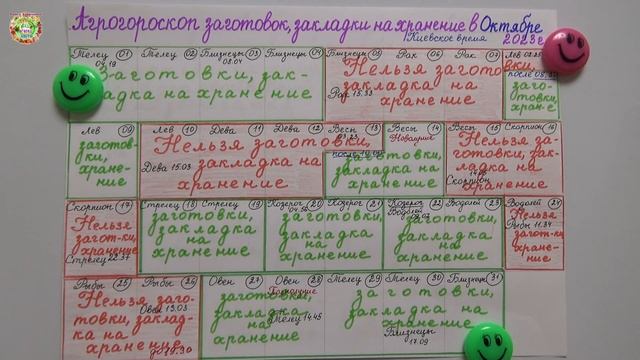 Агрогороскоп заготовок, закладки на хранение в Октябре
Киевское время 2023г
Телец 01 Телец 02 Близнецы 03 Близнецы 04
04.19 08.04
Заготовки, зак-
ладка на хранение
Близнецы 05 Рак 06 Рак 07
Нельзя заготовки,
Рак 15.33
закладка на
хранение
Лев 08
после 08.30
заго-
товки,
хране-
Лев 09
заготов-
ки,
хране-
ние
Лев 10 Дева 11 Дева 12
Нельзя заготовки,
Дева 15.03
закладка на
хранение
Весы 13 Весы 14
03.23 Новолуние
заготовки,
закладка на
хранение
Весы 15 Скорпион 16
Нельзя за-
готовки, зак-
ладка на
Скорпион
хранение
Скорпион 17
Нельзя
загот-ки,
хранение
Стрелец 22.37
Стрелец 18 Стрелец 19
заготовки,
закладка
на
хранение
Козерог 20 Козерог 21
04.56
заготовки,
закладка
на
хранение
Козерог 22 Водолей 23
Водолей
заготовки,
закладка
на
хранение
Водолей 24
Нельзя
Рыбы 11.34
загот-ки,
хране-
ние
Рыбы 25 Рыбы 26
Нельзя заго-
Овен 13.03
товки, заклад-
ка на
хранение до 19.30
Овен 27 Овен 28
Полнолуние
заготовки,
закладка
Телец 14.45
на
хранение
Телец 29 Телец 30 Близнецы 31
заготовки,
закладка на
хранение
Близнецы
17.09